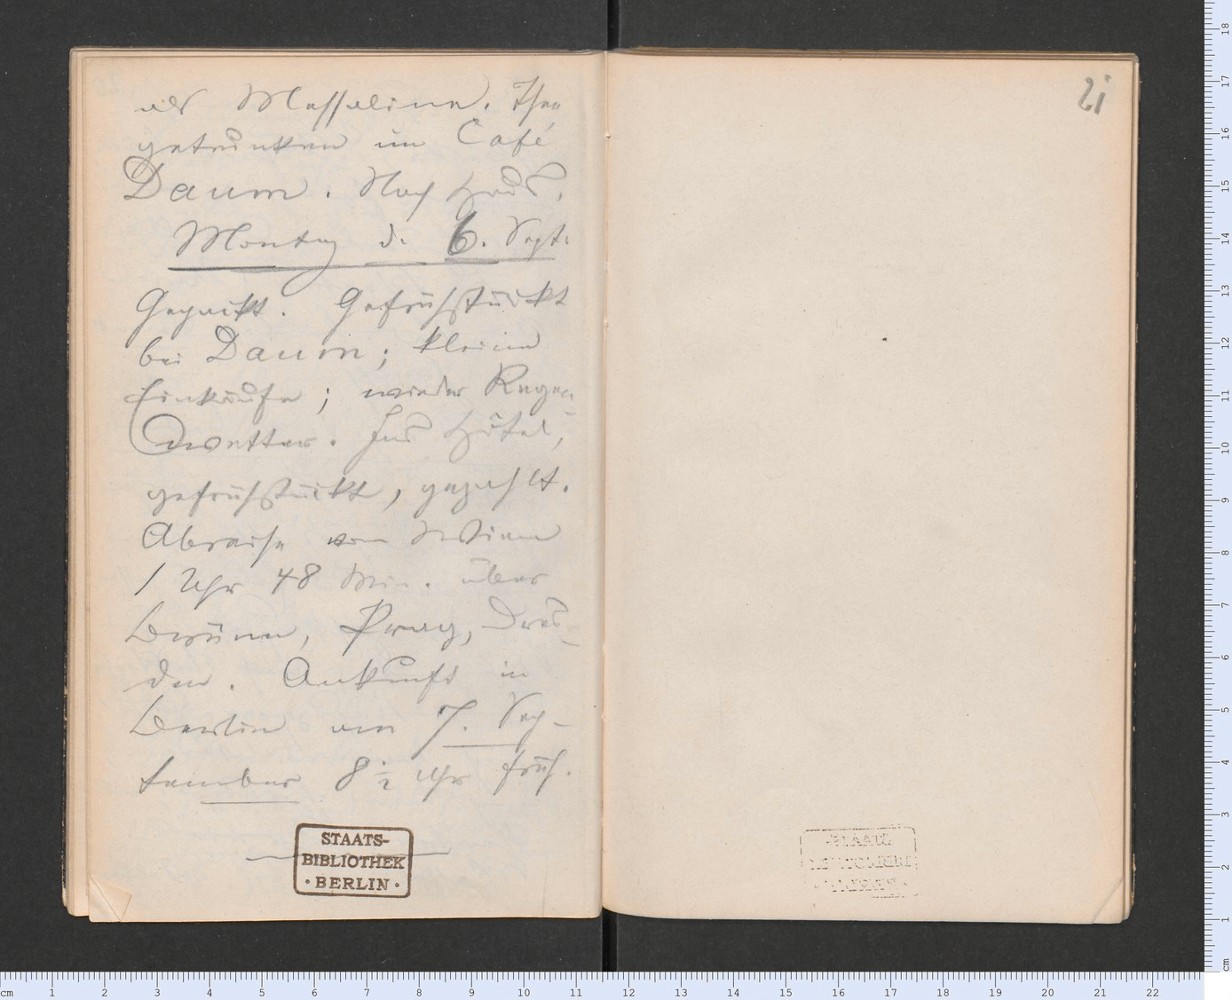 als Messaline. Thee
getrunken im Café
Daum. Nach Haus.
Montag d. 6. Sept.
Gepackt. Gefrühstückt
bei Daum; kleine
Einkäufe; wieder Regen-
wetter. Ins Hôtel,
gefrühstückt, gezahlt.
Abreise von Wien
1 Uhr 48 Min. über
Brünn, Prag, Dres-
den. Ankunft in
Berlin am 7. Sep-
tember 8 1/2 Uhr früh.
STAATS-
BIBLIOTHEK
· BERLIN ·
21